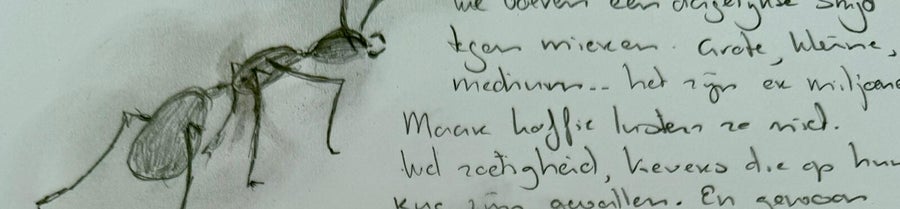 we voeren een dagelijkse strijd
tegen mieren. Grote, kleine,
medium... het zijn er miljoene
Maar koffie lusten ze niet.
Wel zoetigheid, kevers die op hun
rug zijn gevallen. En gewoon